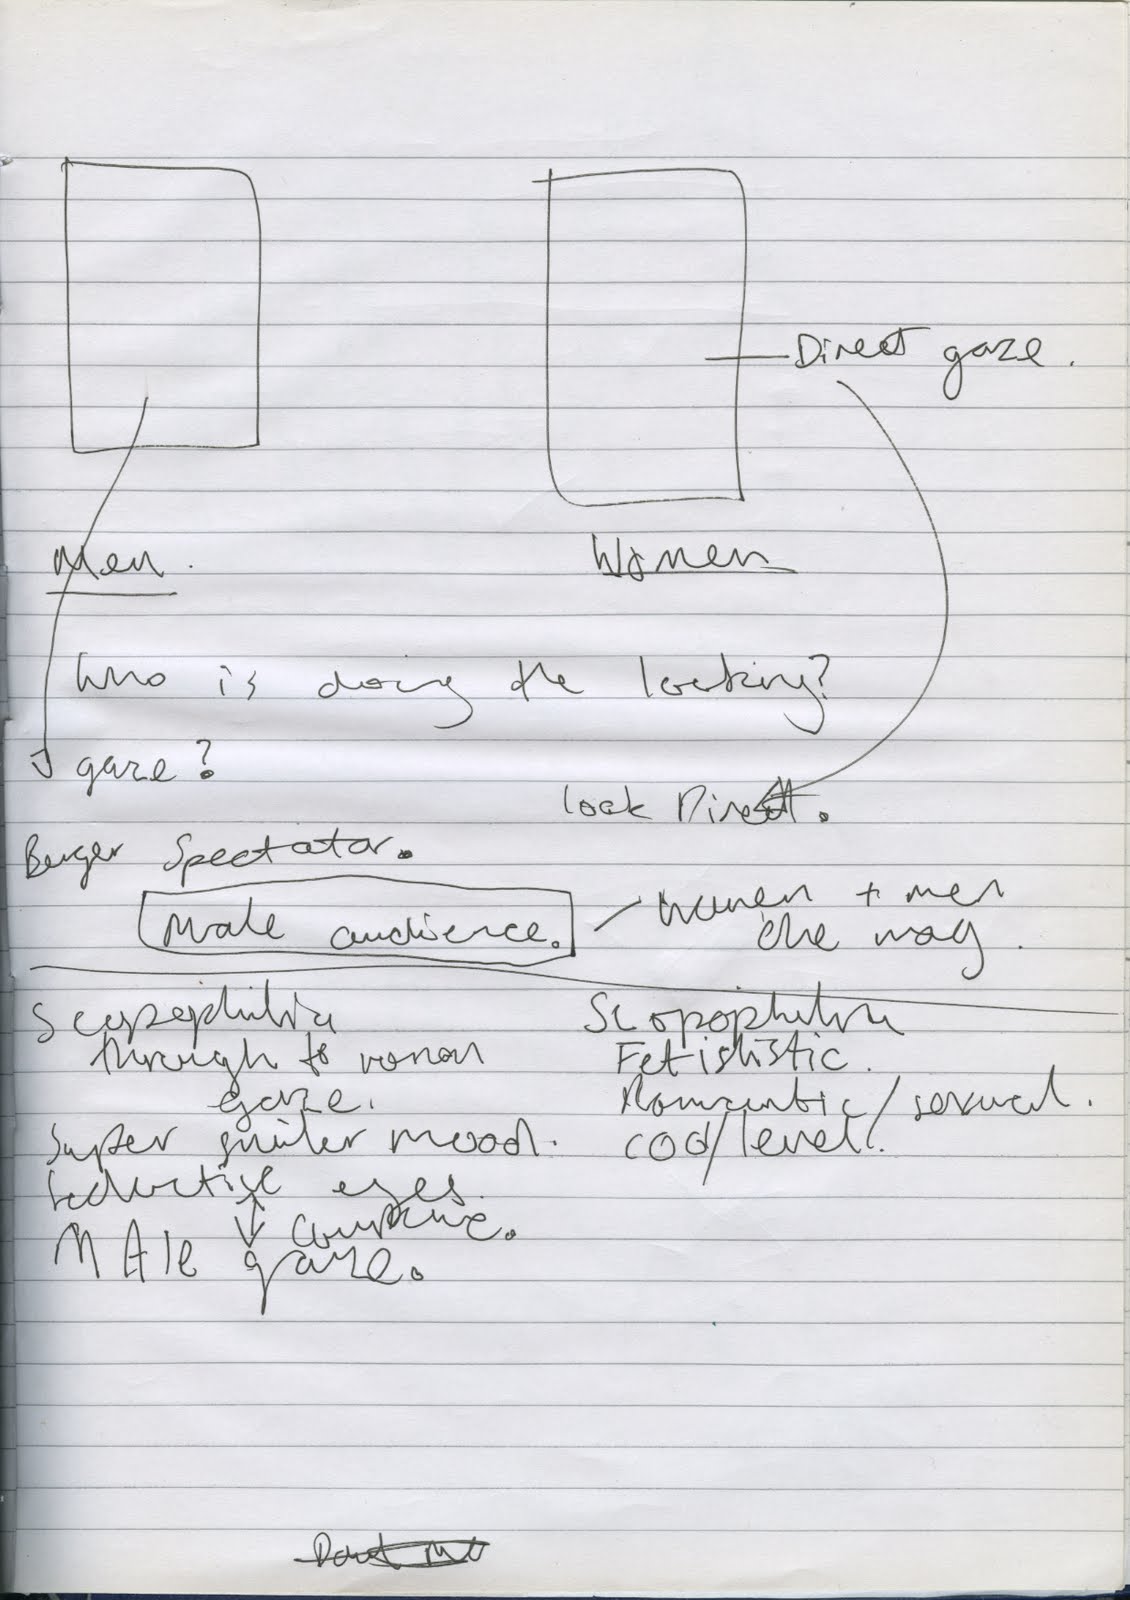 Direct gaze.
Men.
Women
Who is doing the looking?
gaze?
look Direct.
Berger Spectator.
Male audience.
Women + men
One mag.
Scopophilia
through to
gaze.
Super mood.
Seductive eyes.
MAle gaze.
Scopophilia
Fetishistic.
Romantic/sexual.
cod/level.